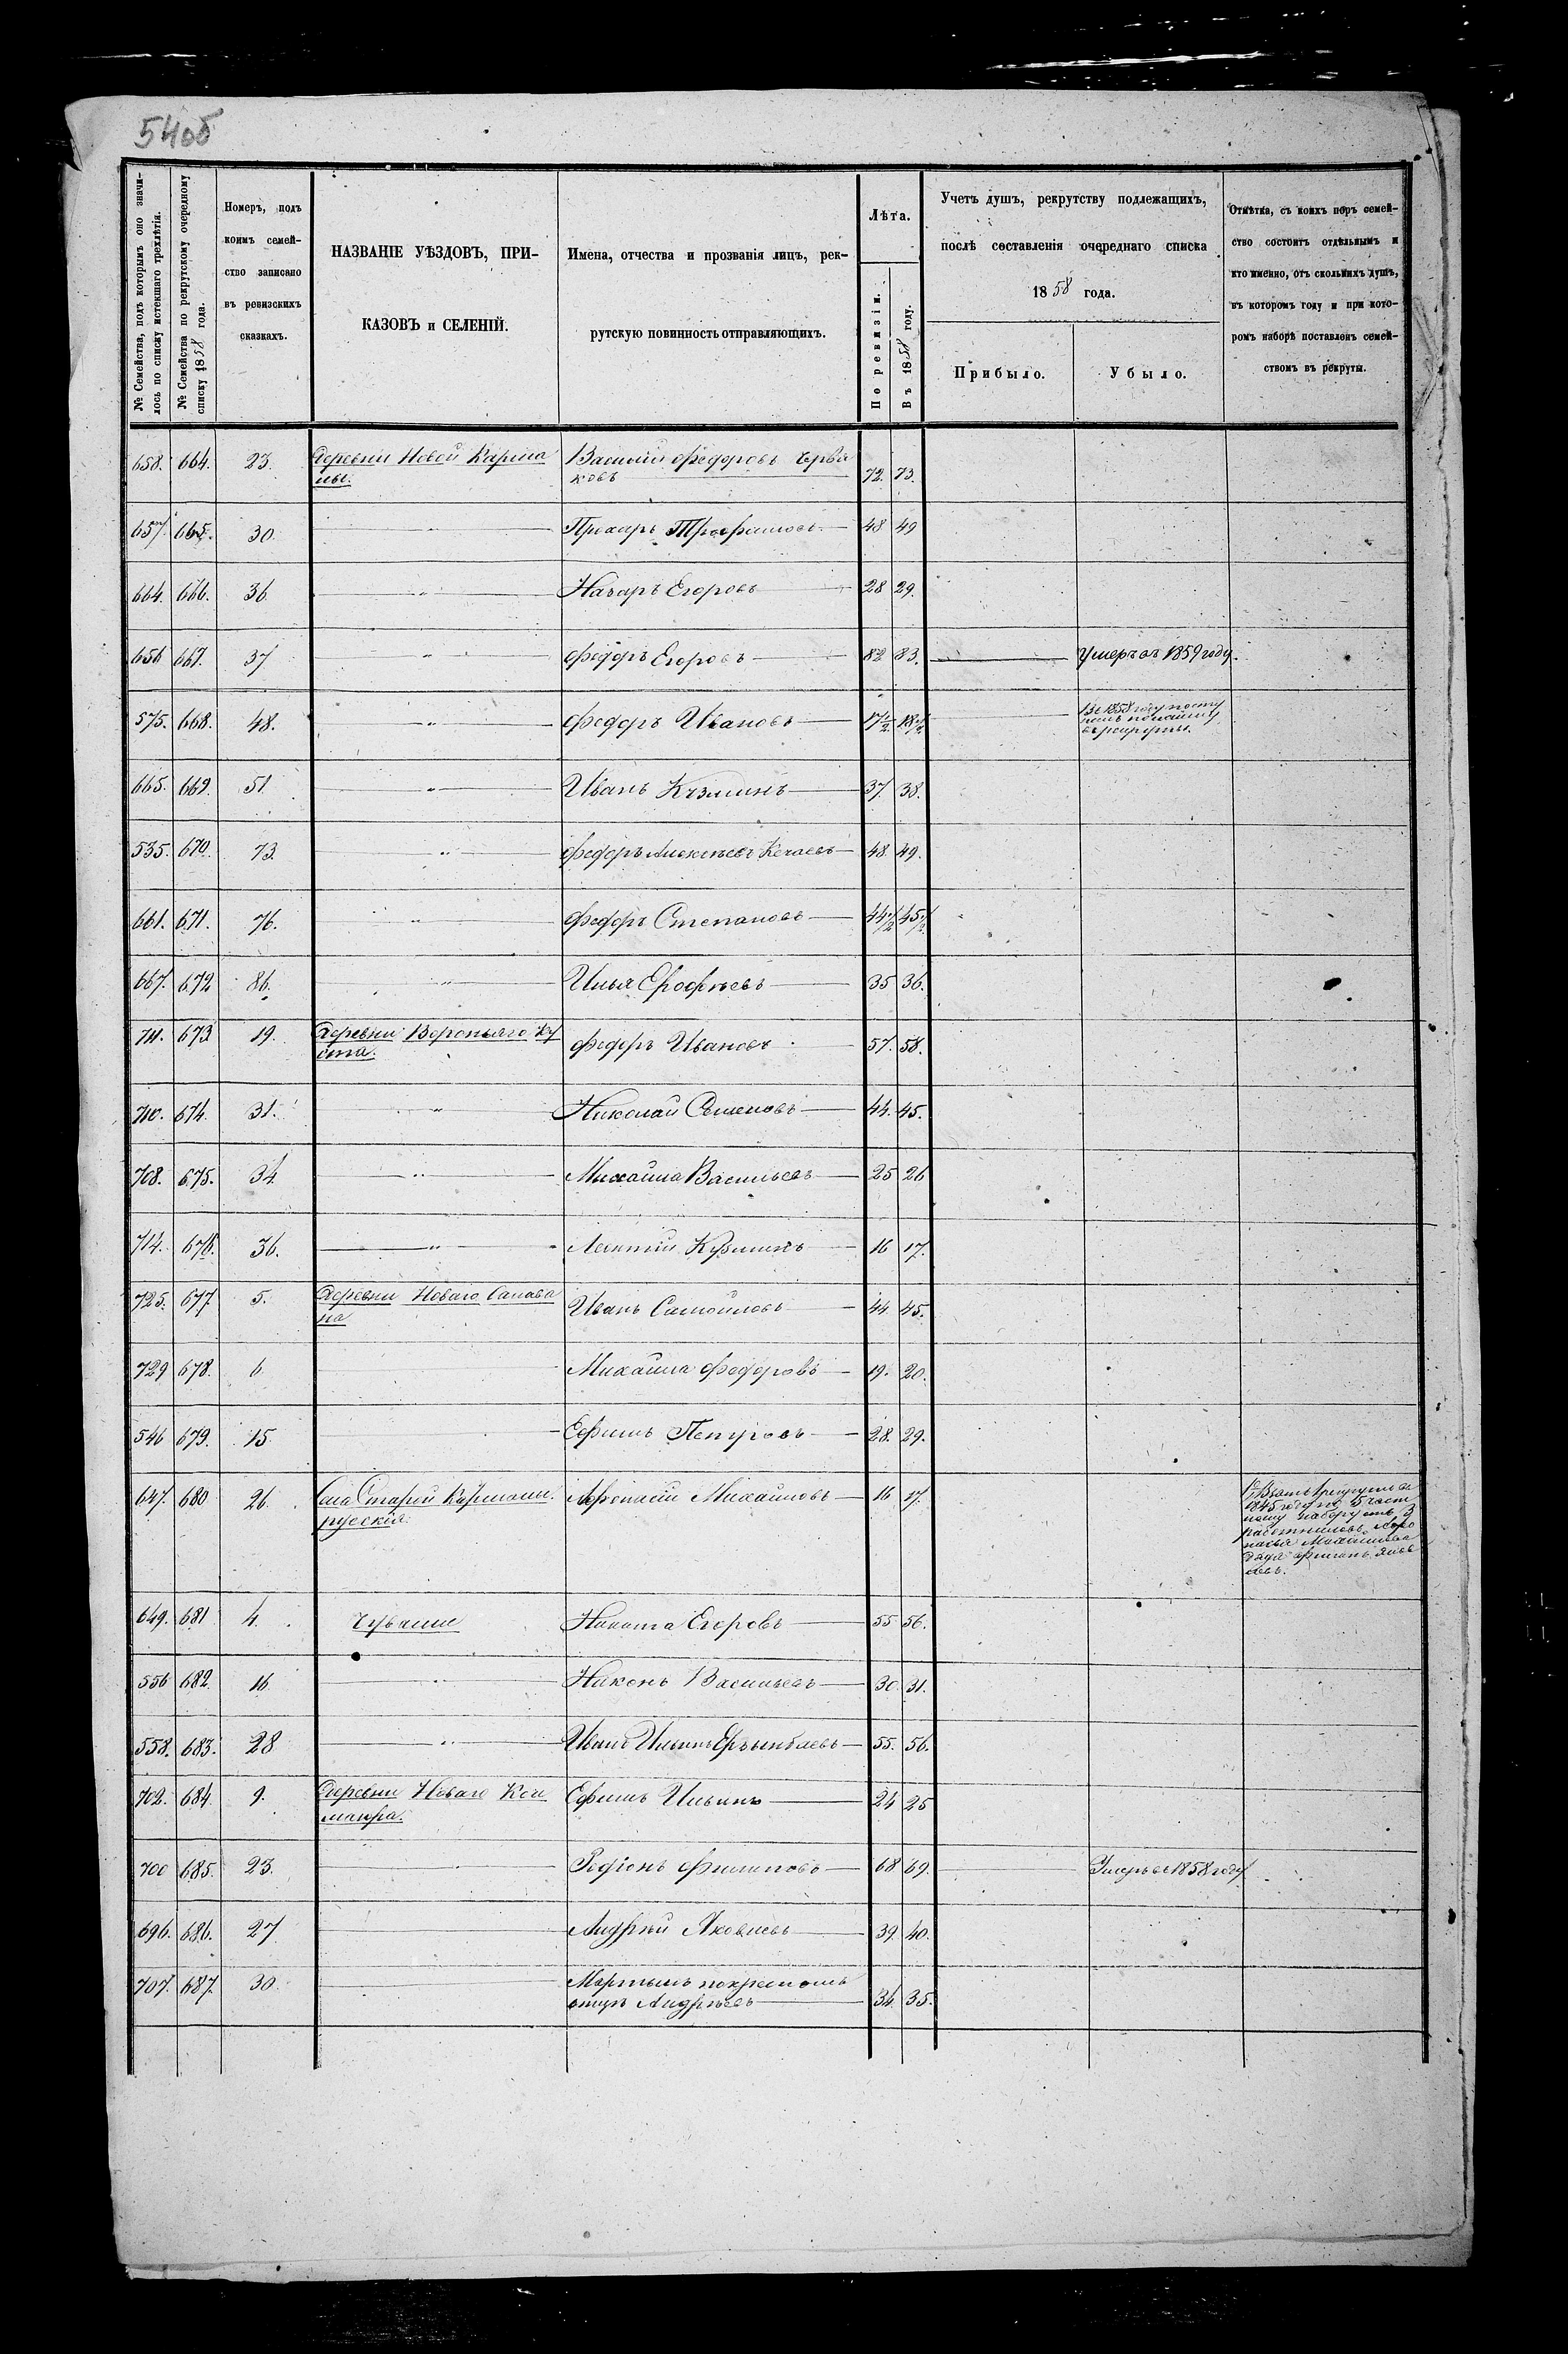 540об
№ Семейства, подъ которымъ оно значи-
лось по списку истекшаго трехлѣтія.
№ Семейства по рекрутскому очередному
списку 1858 года.
Номеръ, подъ
коимъ семей-
ство записано
въ ревизскихъ
сказкахъ.
НАЗВАНІЕ УѢЗДОВЪ, ПРИ-
КАЗОВЪ и СЕЛЕНІЙ.
Имена, отчества и прозванія лицъ, рек-
рутскую повинность отправляющихъ.
Лѣта.
По ревизіи.
Въ 1858 году.
Учетъ душъ, рекрутству подлежащихъ,
послѣ составленія очереднаго списка
1858 года.
Прибыло.
Убыло.
Отмѣтка, съ коихъ поръ семей-
ство состоитъ отдѣльнымъ и
кто именно, отъ сколькихъ душъ,
въ которомъ году и при кото-
ромъ наборѣ поставленъ семей-
ствомъ въ рекруты.
658. 664. 23. Деревни Новой Карма Василій Федоровъ Черва
лы. ковъ 72. 73.
657. 665. 30. Прохоръ Трофимовъ 48 49
664. 666. 36 Назаръ Егоровъ 28 29.
656 667. 37 Федоръ Егоровъ 82 83. Умеръ въ 1859 году.
575. 668. 48. Федоръ Ивановъ 17 1/2 18 1/2 Въ 1858 году посту
пилъ по найму
въ рекруты.
665. 669. 51. Иванъ Кузминъ 37. 38.
535. 670. 73. Федоръ Алексѣевъ 48. 49.
661. 671. 76. Федоръ Степановъ 44 1/2 45 1/2
667. 672 86. Илья Ерофѣевъ 35 36.
711. 673 19. Деревни Вороньяго Ку
ста. Федоръ Ивановъ 57. 58.
710. 674. 31. Николай Семеновъ 44. 45.
708. 675. 34. Михайла Васильевъ 25 26
714. 676. 36. Леонтій Кузминъ 16 17.
725. 677. 5. Деревни Новаго Салава
на Иванъ Самойловъ 44 45.
729 678. 6 Михайла Федоровъ 19. 20.
546 679. 15. Ефимъ Петровъ 28. 29.
647. 680 26. Села Старой Кармалы. Афонасій Михайловъ 16 17.
русскія.
Взятъ въ рекруты въ
1845 году по част
ному набору изъ 3
работниковъ Афо
насья Михайлова
дядя Яков
левъ.
649. 681 4. Чуваши Никита Егоровъ 55 56.
556 682. 16 Никонъ Васильевъ 30. 31.
558. 683. 28 Иванъ Ильинъ 55. 56.
702. 684. 9. Деревни Новаго Ефимъ Ильинъ 24 25
700 685. 23. Родіонъ Филиповъ 68 69. Умеръ въ 1858 году
696. 686. 27 Андрѣй Яковлевъ 39. 40.
707. 687. 30. Мартынъ по крестномъ
отцу Андрѣевъ 34. 35.